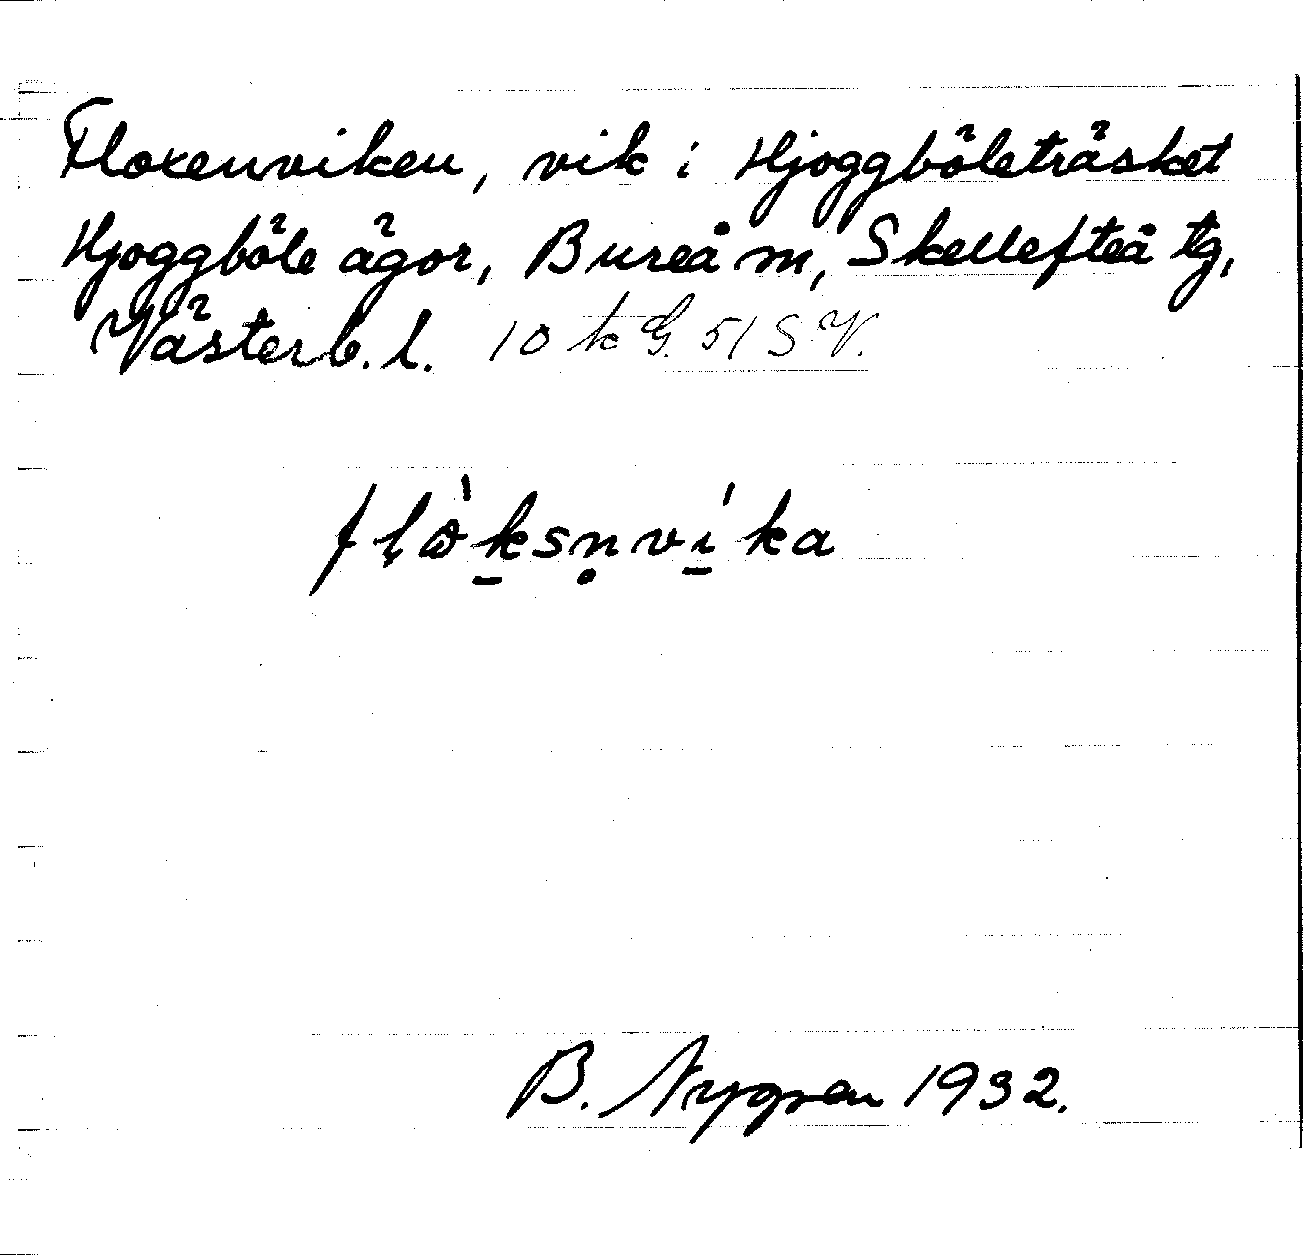 Floxenviken, vik i Hjoggböleträsket
Hjoggböle ägor, Bureå m, Skellefteå tg,
Västerb. l. 10 k G. 51 S.V.
flὼk̠sṇví̠ka
B. Nygren 1932.